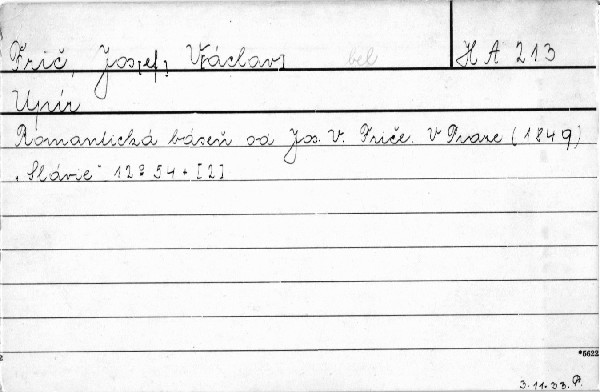 Frič, Jos[ef] V[áclav] bel H A 213
Upír
Romantická báseň od Jos. V. Friče. V Praze (1849)
„Slávie“ 12° 54 + [2]
*5622
3.11.33. P.